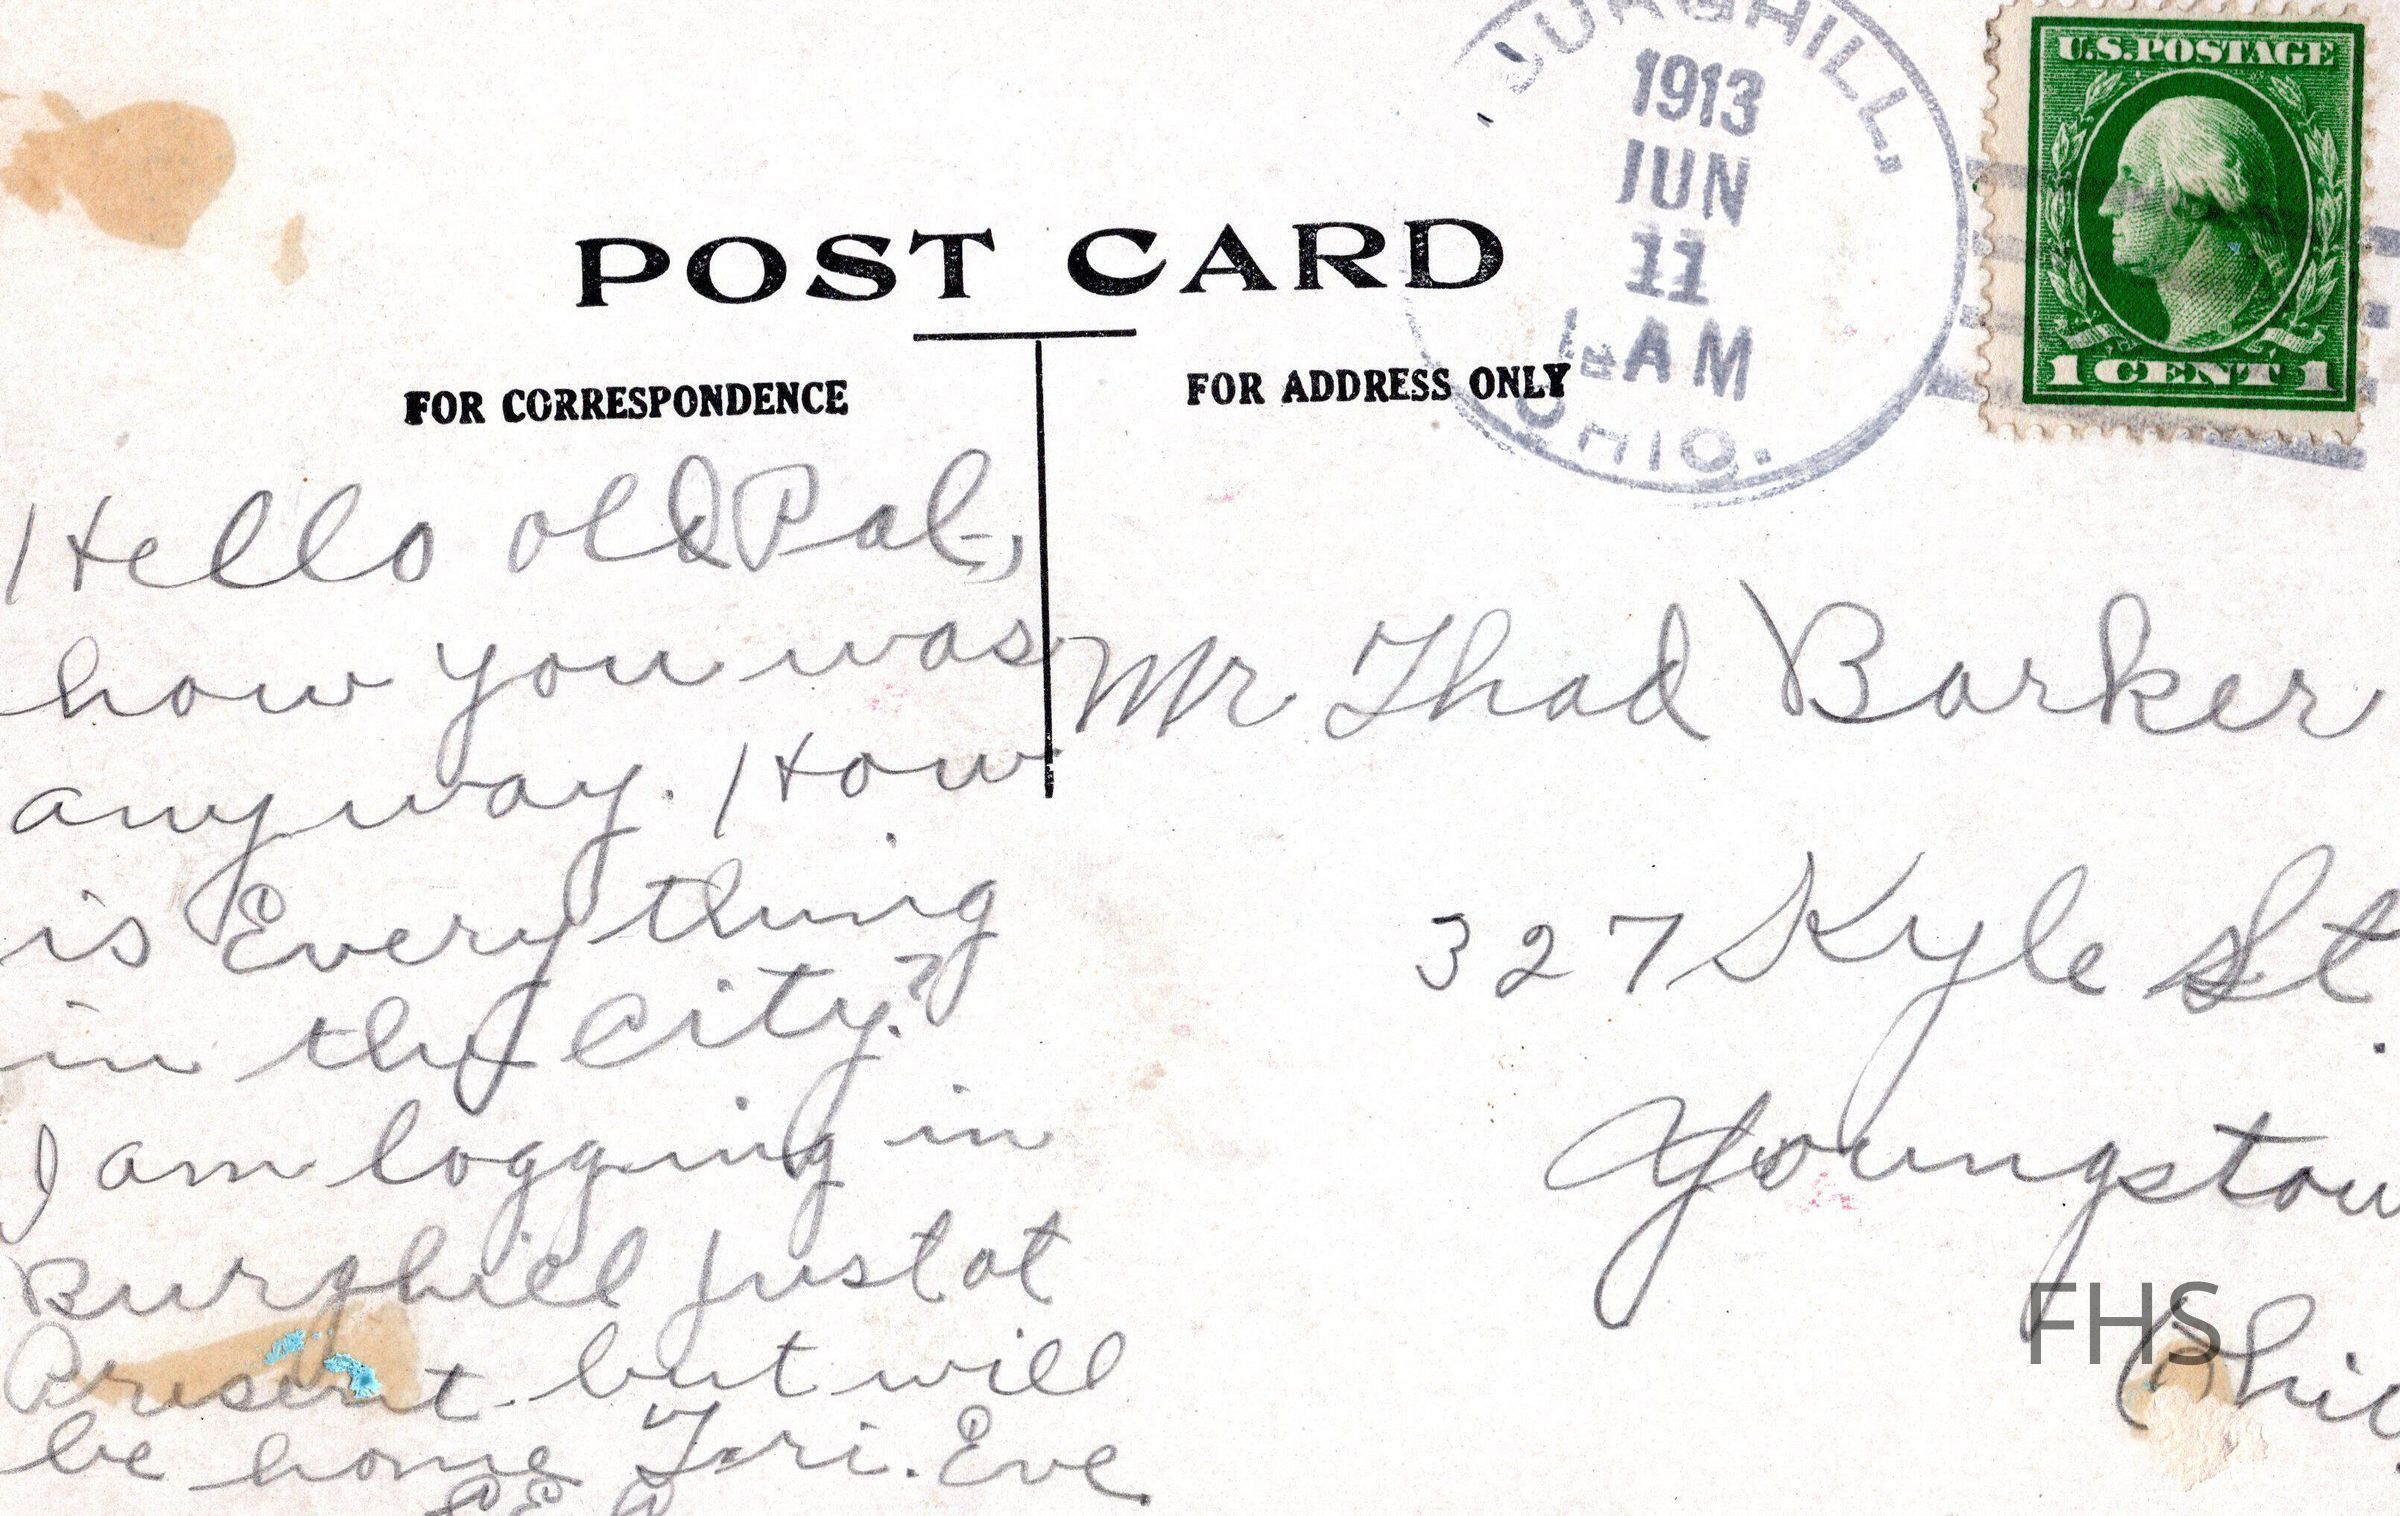 BURGHILL,
1913
JUN
11
AM
OHIO.
U.S. POSTAGE
1 CENT 1
POST CARD
FOR CORRESPONDENCE
FOR ADDRESS ONLY
Hello old Pal,
how you was
any way. How
is Everything
in the City?
I am logging in
Burghill just at
Present but will
be home Fri. Eve
Mr Thad Barker
327 Kyle St.
Youngstow
Ohio
FHS